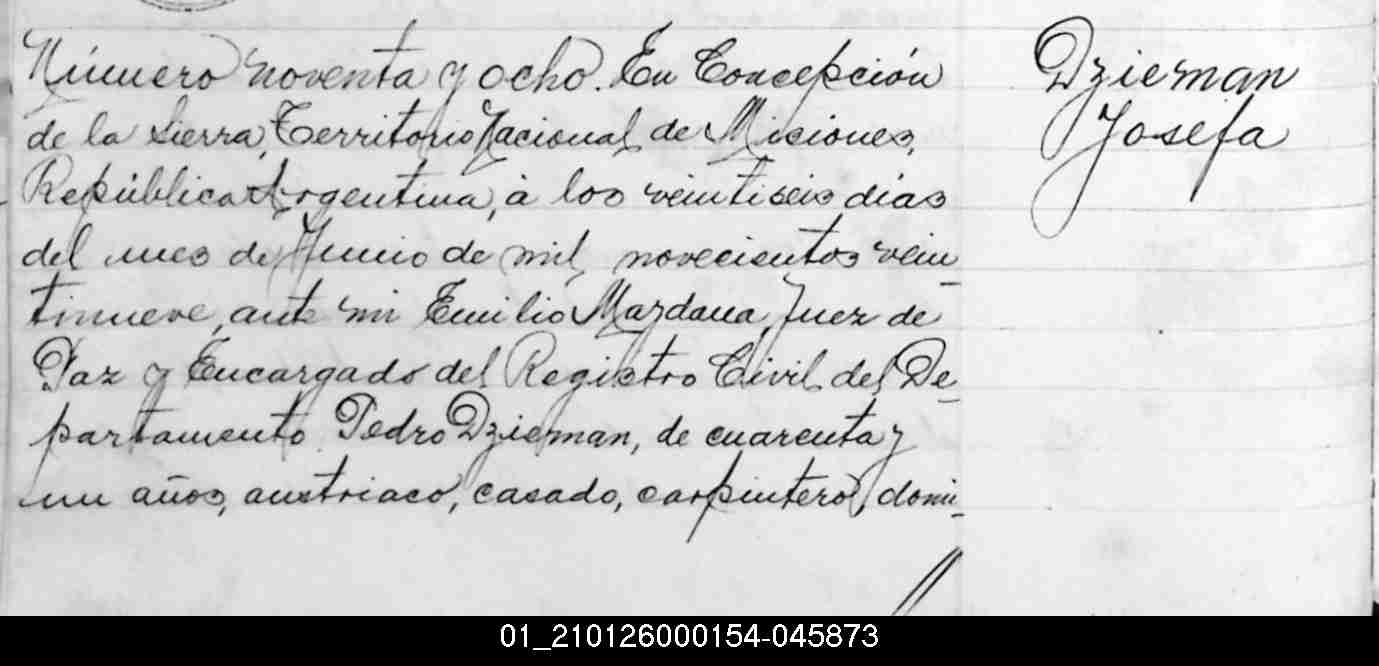 Número noventa y ocho. En Concepción
de la Sierra, Territorio Nacional de Misiones,
República Argentina, á los veintiseis dias
del mes de Junio de mil novecientos vein-
tinueve, ante mi Emilio Mazdana, Juez de
Paz y Encargado del Registro Civil del De-
partamento Pedro Dzieman, de cuarenta y
un años, austriaco, casado, carpintero, domi-
Dzieman
Josefa
01_210126000154-045873